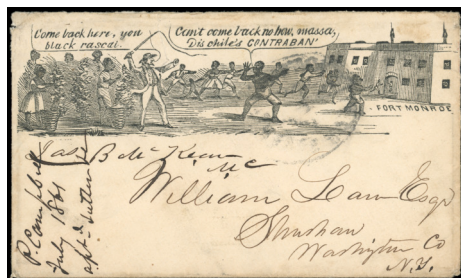 Come back here, you
black rascal.
Can't come back nohow, massa;
Dis chile's CONTRABAN'
FORT MONROE
Jas B McKean
MC
William Law Esqr
Shushan
Washington Co
N.Y.
July 1861